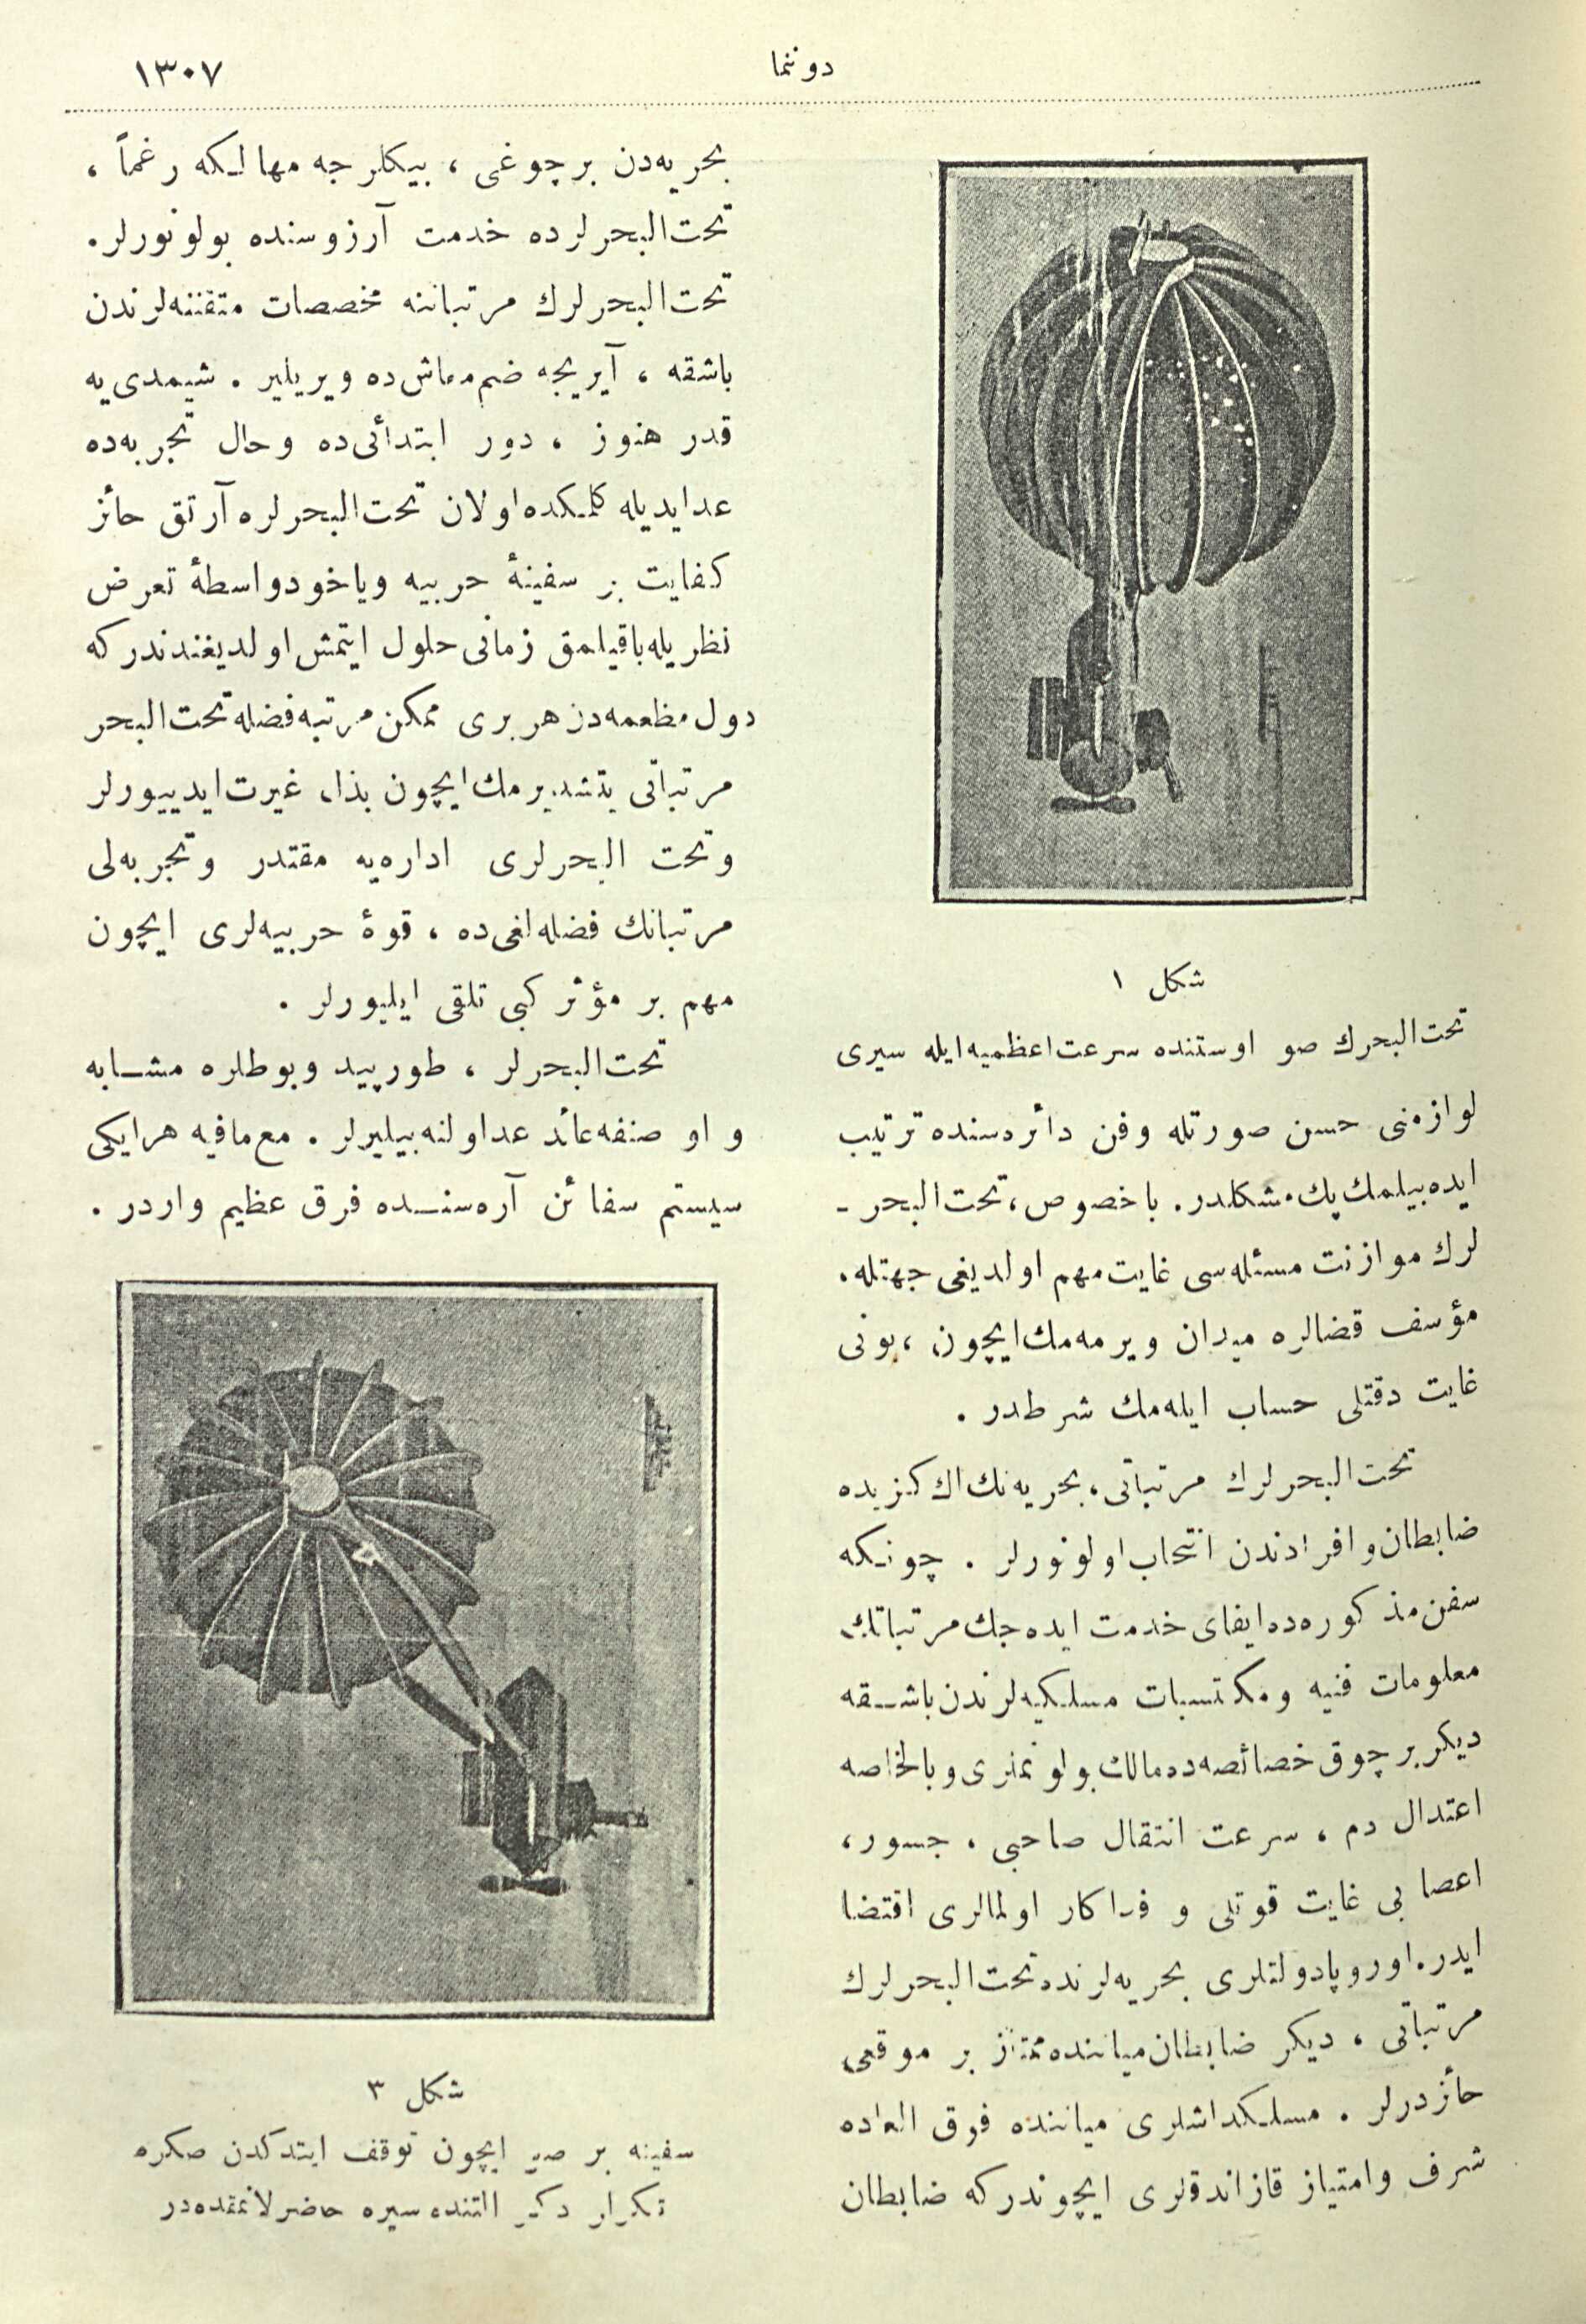 دوننما
١٣٠٧
شكل ١
تحت‌البحرك صو اوستنده سرعت اعظميه ايله سيرى
لوازمنى حسن صورتله وفن دائره‌سنده ترتيب
ايده‌بيلمك پك مشكلدر. باخصوص، تحت‌البحر ـ
لرك موازنت مسئله‌سى غايت مهم اولديغى جهتله،
مؤسف قضالره ميدان ويرمه‌مك ايچون، بونى
غايت دقتلى حساب ايله‌مك شرطدر.
تحت‌البحرلرك مرتباتى، بحريه‌نك اك كزيده
ضابطان و افرادندن انتخاب اولونورلر. چونكه
سفن مذكوره‌ده ايفاى خدمت ايده‌جك مرتباتك
معلومات فنيه و مكتسبات مسلكيه‌لرندن باشقه
ديكر بر چوق خصائصه‌ده مالك بولونمزى وبالخاصه
اعتدال دم، سرعت انتقال صاحبى، جسور،
اعصابى غايت قوتلى و فداكار اولمالرى اقتضا
ايدر. اوروپا دولتلرى بحريه‌لرنده تحت‌البحرلرك
مرتباتى، ديكر ضابطان مياننده ممتاز بر موقعى
حائزدرلر. مسلكداشلرى مياننده فوق العاده
شرف وامتياز قازاندقلرى ايچوندركه ضابطان
بحريه‌دن برچوغى، بيكلرجه مهالكه رغماً،
تحت‌البحرلرده خدمت آرزوسنده بولونورلر.
تحت‌البحرلرك مرتباتنه مخصصات متفننه‌لرندن
باشقه، آيريجه ضم معاش ده ويريلير. شيمدى‌يه
قدر هنوز، دور ابتدائى‌ده وحال تجربه‌ده
عد ايديله كلمكده اولان تحت‌البحرلره آرتق حائز
كفايت بر سفينۀ حربيه وياخود واسطۀ تعرض
نظريله باقيلمق زمانى حلول ايتمش اولديغندندركه
دول معظمه‌دن هر برى ممكن مرتبه فضله تحت‌البحر
مرتباتى يتشديرمك ايچون بذل غيرت ايدييورلر
وتحت البحرلرى اداره‌يه مقتدر وتجربه‌لى
مرتباتك فضله‌لغى‌ده، قوۀ حربيه‌لرى ايچون
مهم بر مؤثر كبى تلقى ايليورلر.
تحت‌البحرلر، طورپيد وبوطلره مشابه
و او صنفه عائد عد اولنه‌بيليرلر. مع‌مافيه هر ايكى
سيستم سفائن آره‌سنده فرق عظيم واردر.
شكل ٣
سفينه بر صير ايچون توقف ايتدكدن صكره
تكرار دكز التنده سيره حاضرلانمقده‌در